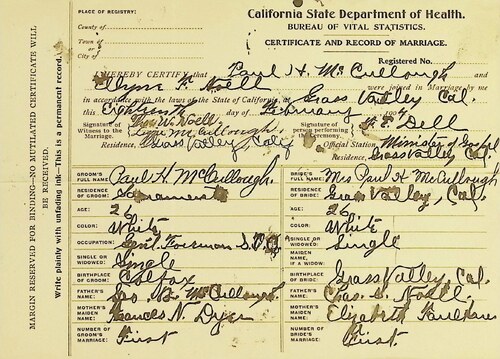 PLACE OF REGISTRY:
County of
Town of
or
City of
California State Department of Health.
BUREAU OF VITAL STATISTICS.
CERTIFICATE AND RECORD OF MARRIAGE.
Registered No.
I HEREBY CERTIFY that Paul H. McCullough and
Ellyn F. Noell were joined in Marriage by me
in accordance with the laws of the State of California, at Grass Valley Cal.
this Eighteenth day of February
Signature of Witness to the Marriage, Geo. W. Noell
McCullough
Residence, Grass Valley Calif
Signature of person performing the Ceremony. Dell
Official Station, Minister of Gospel
Residence, Grass Valley Cal.
GROOM'S FULL NAME: Paul H. McCullough.
RESIDENCE OF GROOM: Sacramento
AGE: 29
COLOR: White
OCCUPATION: Foreman
SINGLE OR WIDOWED: Single
BIRTHPLACE OF GROOM: Colfax
FATHER'S NAME: McCullough
MOTHER'S MAIDEN NAME: Frances N. Dyer
NUMBER OF GROOM'S MARRIAGE: First
BRIDE'S FULL NAME: Mrs Paul H McCullough
RESIDENCE OF BRIDE: Grass Valley, Cal.
AGE: 26
COLOR: White
SINGLE OR WIDOWED: Single
MAIDEN NAME, IF A WIDOW:
BIRTHPLACE OF BRIDE: Grass Valley, Cal.
FATHER'S NAME: Chas. Noell
MOTHER'S MAIDEN NAME: Elizabeth
NUMBER OF BRIDE'S MARRIAGE: First.
MARGIN RESERVED FOR BINDING—NO MUTILATED CERTIFICATE WILL BE RECEIVED.
Write plainly with unfading ink—This is a permanent record.